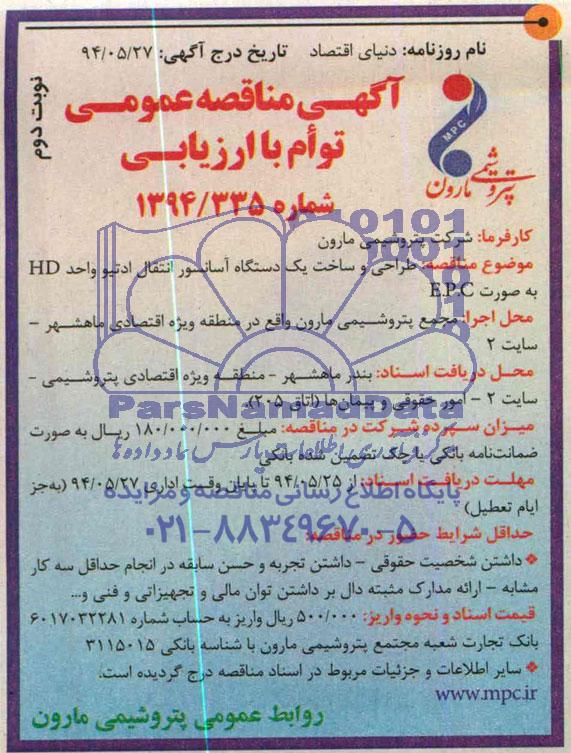 نام روزنامه: دنیای اقتصاد تاریخ درج آگهی: ۹۴/۰۵/۲۷
نوبت دوم
آگهی مناقصه عمومی
توأم با ارزیابی
شماره ۱۳۹۴/۳۳۵
MPC
پتروشیمی مارون
کارفرما: شرکت پتروشیمی مارون
موضوع مناقصه: طراحی و ساخت یک دستگاه آسانسور انتقال ادتیو واحد HD
به صورت E.P.C
محل اجرا: مجتمع پتروشیمی مارون واقع در منطقه ویژه اقتصادی ماهشهر –
سایت ۲
محل دریافت اسناد: بندر ماهشهر - منطقه ویژه اقتصادی پتروشیمی -
سایت ۲ - امور حقوقی و پیمان‌ها (اتاق ۲۰۵)
ParsNamadData
میزان سپرده شرکت در مناقصه: مبلغ ۱۸۰/۰۰۰/۰۰۰ ریال به صورت
ضمانت‌نامه بانکی یا چک تضمین شده بانکی
مهلت دریافت اسناد: از ۹۴/۰۵/۲۵ تا پایان وقت اداری ۹۴/۰۵/۲۷ (به‌جز
ایام تعطیل)
پایگاه اطلاع رسانی مناقصه و مزایده
۰۲۱-۸۸۳۴۹۶۷۰-۵
حداقل شرایط حضور در مناقصه:
❖ داشتن شخصیت حقوقی - داشتن تجربه و حسن سابقه در انجام حداقل سه کار
مشابه - ارائه مدارک مثبته دال بر داشتن توان مالی و تجهیزاتی و فنی و...
قیمت اسناد و نحوه واریز: ۵۰۰/۰۰۰ ریال واریز به حساب شماره ۶۰۱۷۰۳۲۲۸۱
بانک تجارت شعبه مجتمع پتروشیمی مارون با شناسه بانکی ۳۱۱۵۰۱۵
❖ سایر اطلاعات و جزئیات مربوط در اسناد مناقصه درج گردیده است.
www.mpc.ir
روابط عمومی پتروشیمی مارون